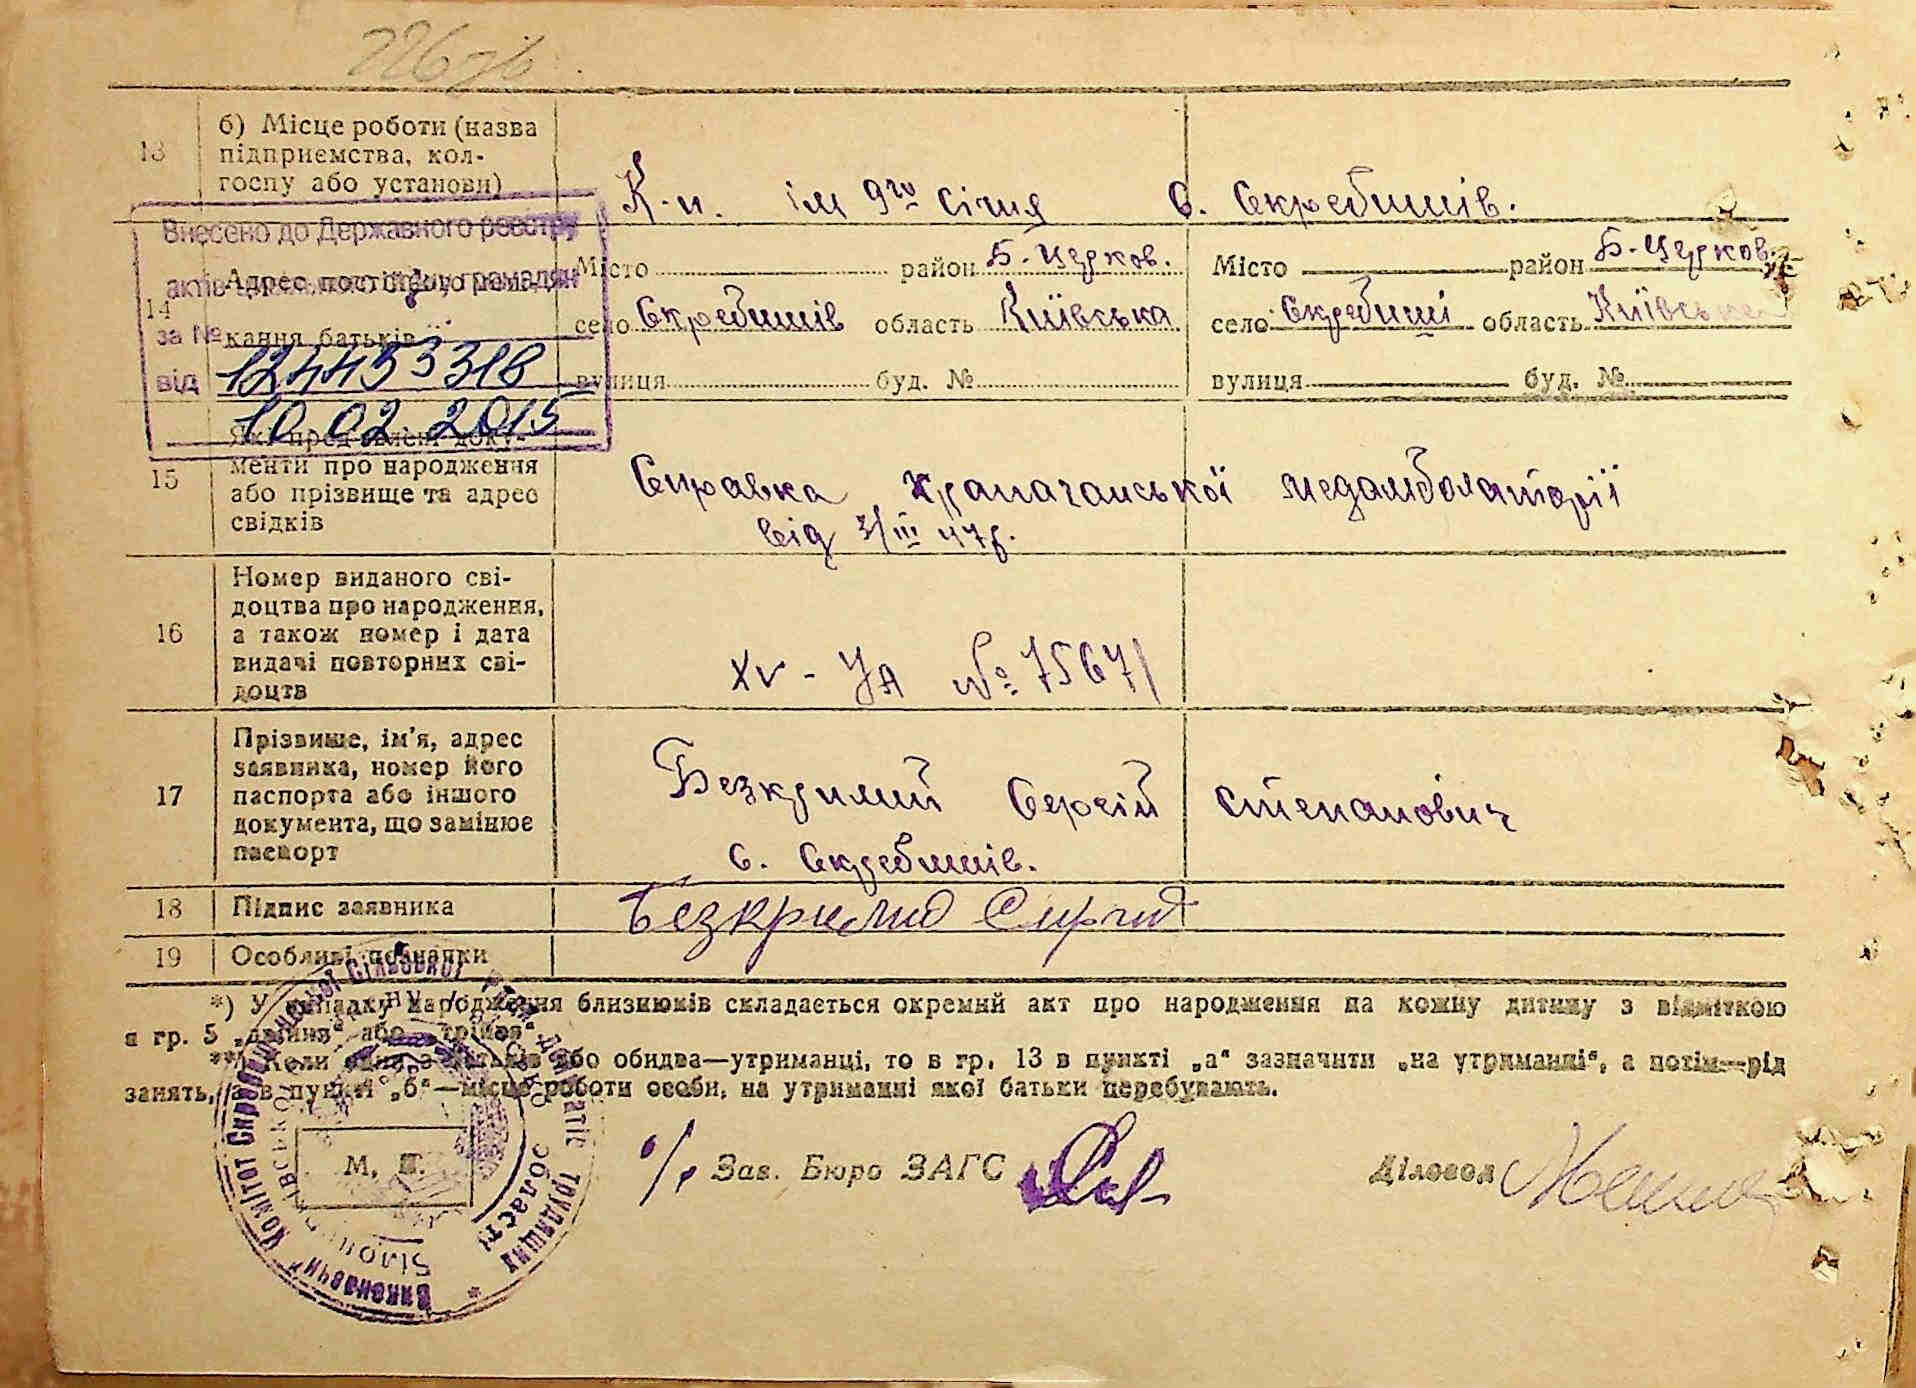 13
б) Місце роботи (назва
підприємства, кол-
госпу або установи)
К-п. ім 9го січня с. Скребишів.
Внесено до Державного реєстру
актів цивільного стану громадян
за №
124453318
від
10 02 2015
14
Адрес постійного
кання батьків
Місто район Б-Церков.
село Скребишів область Київська
вулиця буд. №
Місто район Б-Церков.
село Скребиші область Київська
вулиця буд. №
15
Які пред'явлені доку-
менти про народження
або прізвище та адрес
свідків
Справка Храпачанської медамболаторії
від 3/III 47р.
16
Номер виданого сві-
доцтва про народження,
а також номер і дата
видачі повторних сві-
доцтв
XV - УА № 75671
17
Прізвище, ім'я, адрес
заявника, номер його
паспорта або іншого
документа, що замінює
паспорт
Безкрилий Сергій Степанович
с. Скребишів.
18
Підпис заявника
Безкрилий
19
Особливі познаки
*) У випадку народження близнюків складається окремий акт про народження на кожну дитину з відміткою
в гр. 5 „двійня“ або „трійня“.
**) Коли один з батьків або обидва—утриманці, то в гр. 13 в пункті „а“ зазначити „на утриманні“, а потім—рід
занять, а в пункті „б“—місце роботи особи, на утриманні якої батьки перебувають.
М. П.
Зав. Бюро ЗАГС
Діловод
Виконавчий Комітет Сільської Ради депутатів трудящих
області